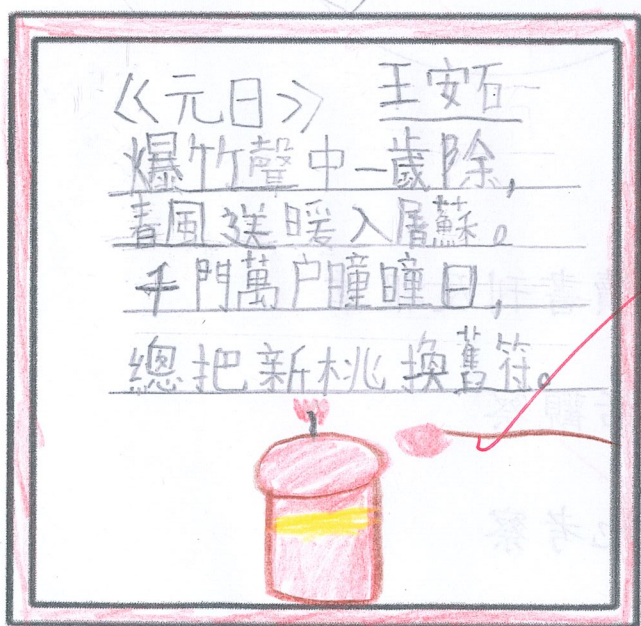 《元日》 王安石
爆竹聲中一歲除,
春風送暖入屠蘇。
千門萬户曈曈日,
總把新桃換舊符。